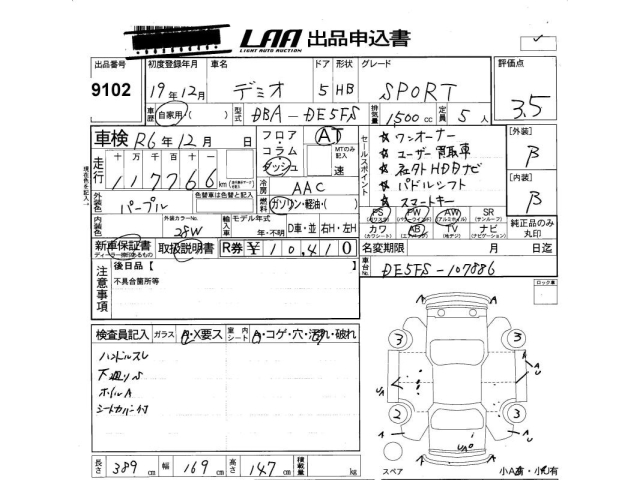 LAA 出品申込書
LIGHT AUTO AUCTION
出品番号 初度登録年月 車名 ドア 形状 グレード 評価点
9102 19年12月 デミオ 5 HB SPORT 3.5
車歴 自家用 型式 DBA-DE5FS 排気量 1500cc 定員 5人
車検 R6年12月 日 フロア AT
コラム MTのみ記入
ダッシュ 速
走行 十万千百十
117766 km
冷房 AAC
外装色 パープル 燃料 ガソリン・軽油・( )
セールスポイント
★ ワンオーナー
★ ユーザー買取車
★ 社外HDDナビ
★ パドルシフト
★ スマートキー
[外装]
B
[内装]
B
PS PW AW SR
カワ AB TV ナビ
純正品のみ丸印
内装色 外装カラーNo. 28W 輸入車 モデル年式 年・不明 D車・並 右H・左H
新車保証書 取扱説明書 R券 ¥10,410
名変期限 月 日迄
車台No. DE5FS-107886
注意事項
後日品【 】
不具合箇所等
ロック車
検査員記入 ガラス A・X要ス 車内シート A・コゲ・穴・汚れ・破れ
ハンドルスレ
下廻りS
ホイルA
シートカバー付
3 3
A
U
UA
2 3
UA
A A
スペア
小A有・小U有
長さ 389 cm 幅 169 cm 高さ 147 cm 積載量 kg